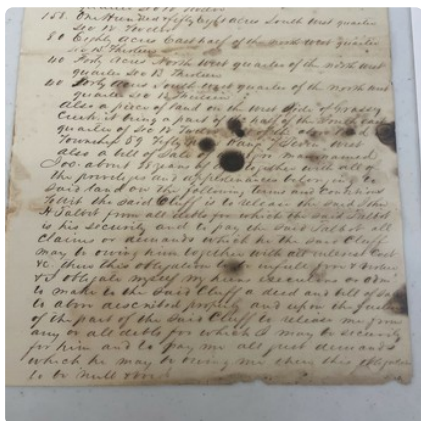 158. One Hundred & fifty Eight acres South West quarter
Sec 12 Twelve
80 Eighty Acres East half of the north West quarter
Sec 13 Thirteen
40 Forty Acres North West quarter of the north West
quarter Sec 13 Thirteen
40 Forty Acres South West quarter of the north West
quarter Sec 13 Thirteen
Also a piece of land on the West Side of Grassy
Creek it being a part of the half of the South East
quarter of Sec 12 Twelve of the above
Township 59 fifty Range Seven West
Also a bill of Sale man named
Joe about years together with all
the privileges and appurtenances belonging to
Said land on the following terms and Conditions
to Wit the said Cluff is to release the said John
H Talbot from all debts for which the said Talbot
is his security and to pay the said Talbot all
claims or demands which he the said Cluff
may be owing him together with all interest Cost
&c thus this obligation to be in full force & virtue
& I obligate myself my heirs executors or adm
to make to the said Cluff a deed and bill of Sale
to above described property and upon the failure
of the part of the said Cluff to release me from
any or all debts for which I may be security
for him and to pay me all just demands
which he may be owing me then this obligation
to be null & void